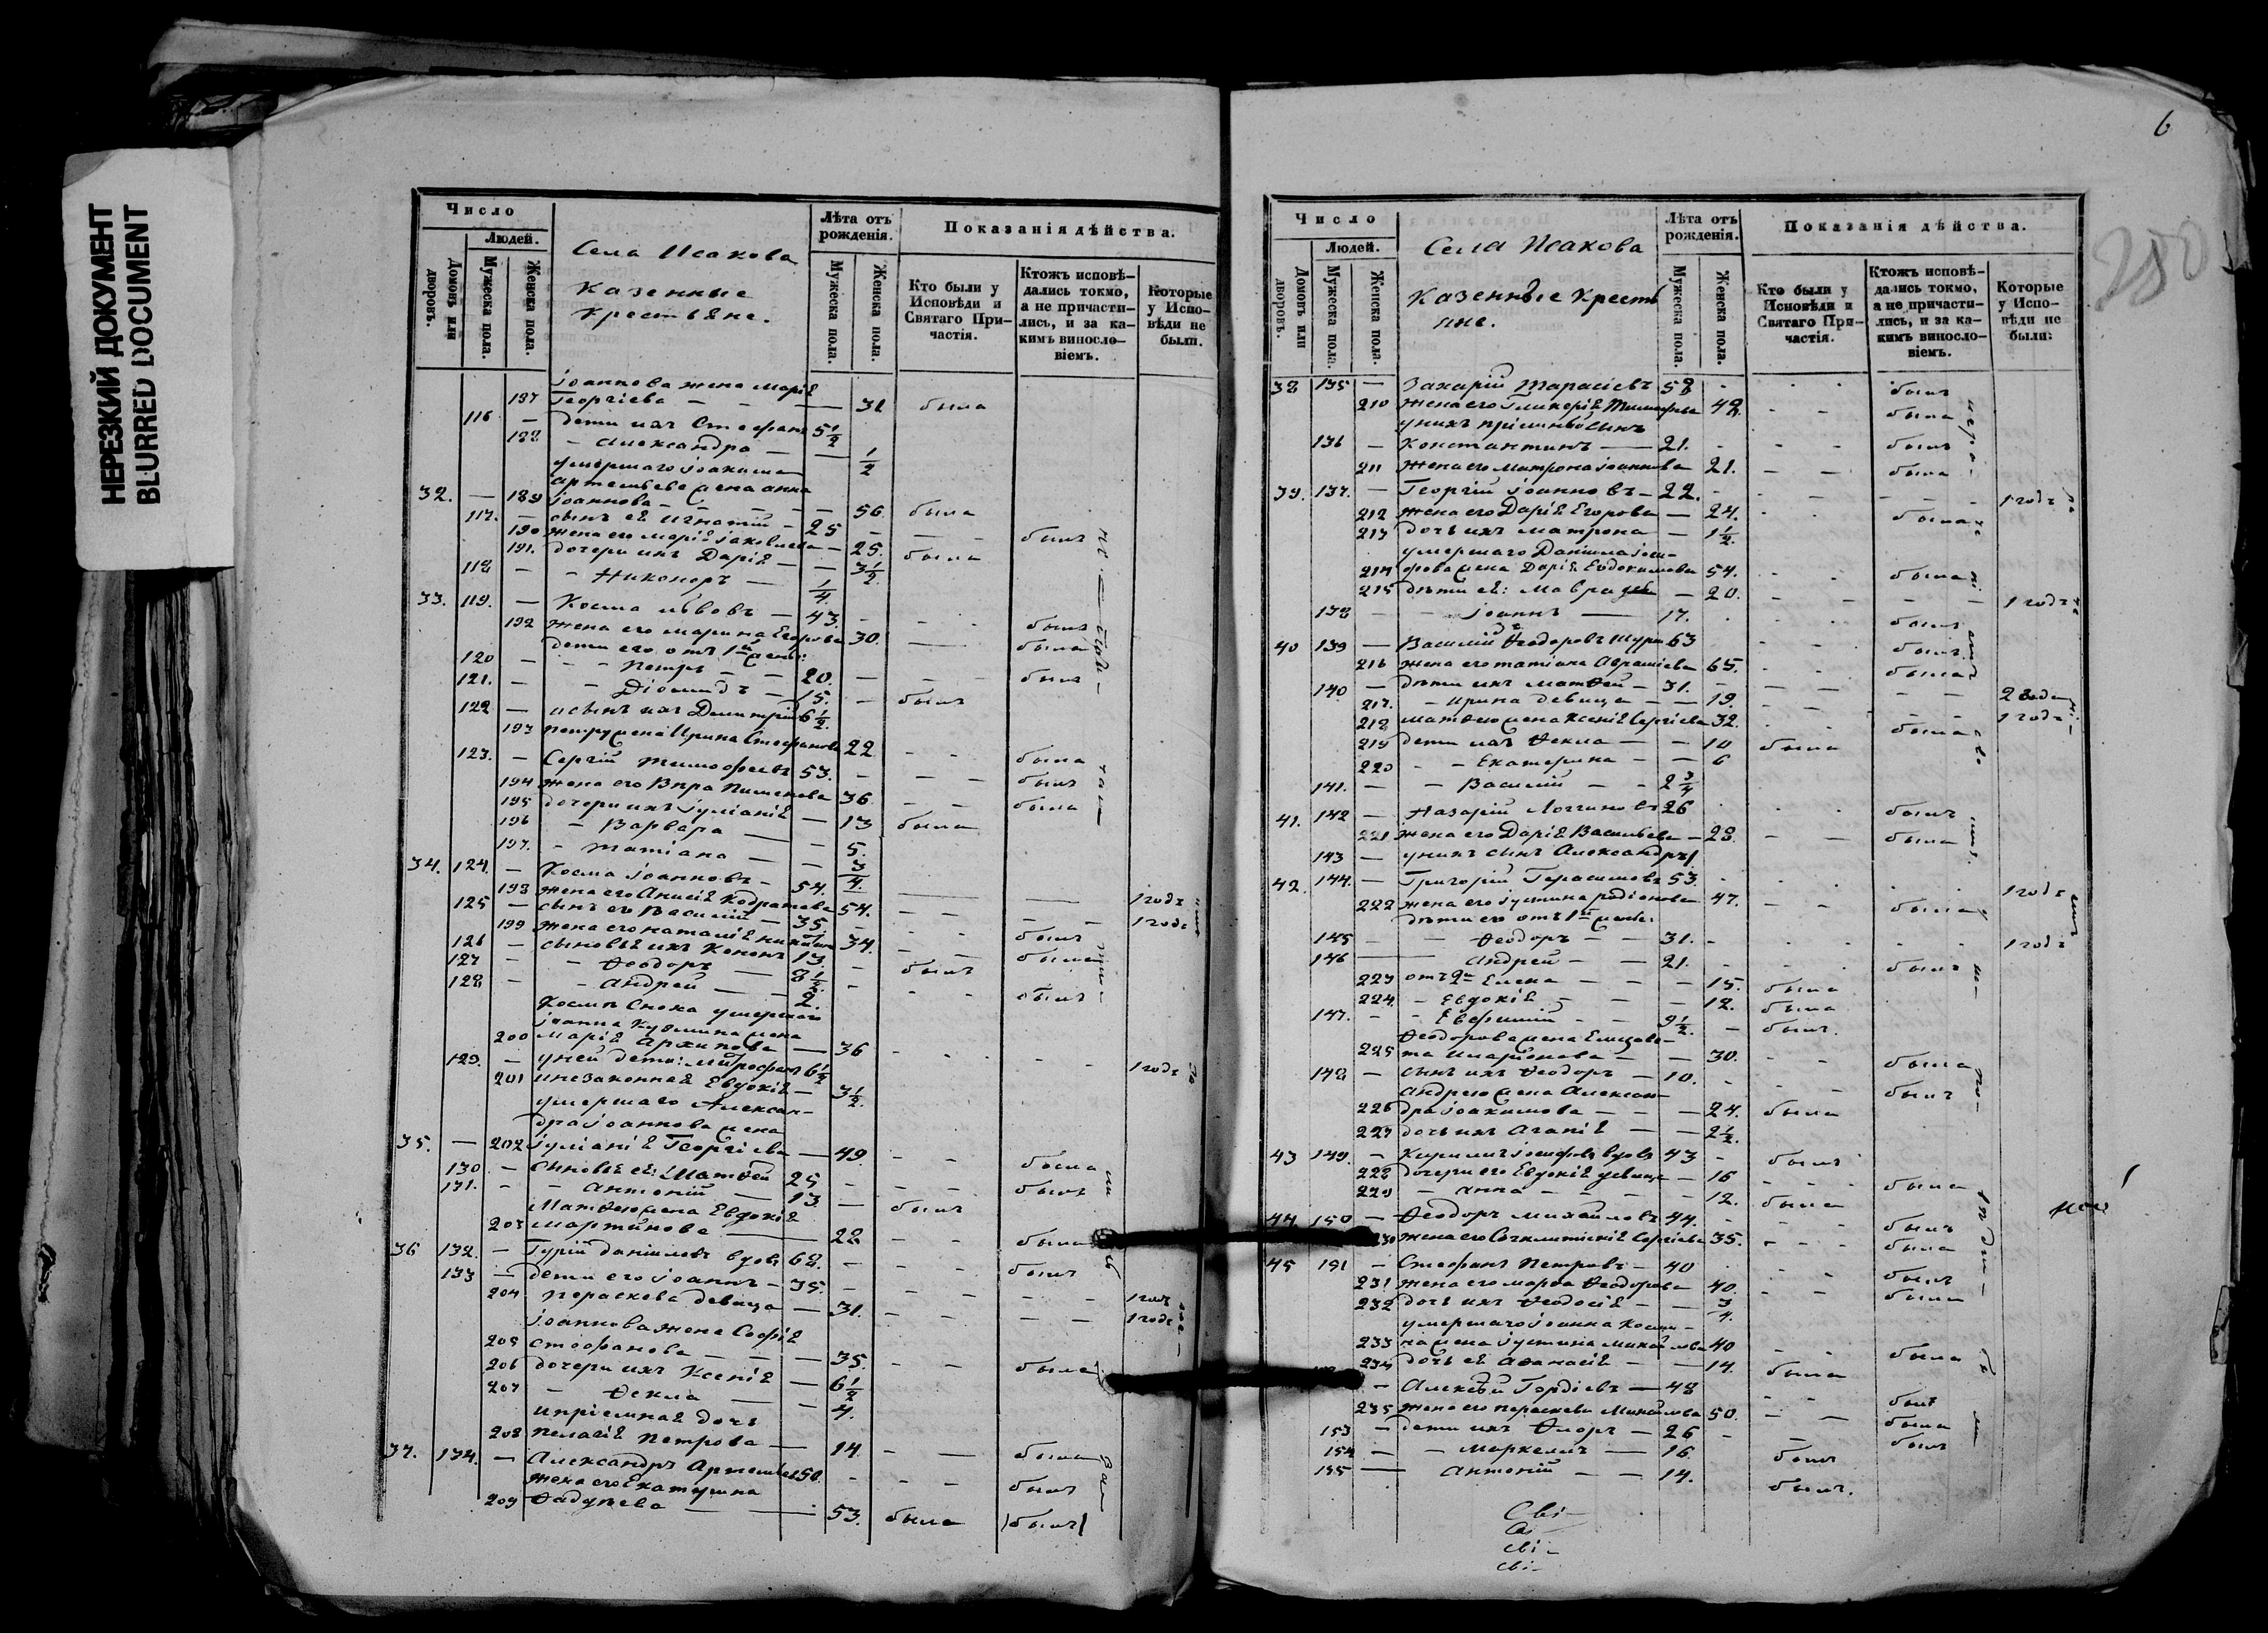 НЕРЕЗКИЙ ДОКУМЕНТ
BLURRED DOCUMENT
Число
Людей.
Домовъ или дворовъ.
Мужеска пола.
Женска пола.
Села Исакова
Казенные
Крестьяне.
Лѣта отъ рожденія.
Мужеска пола.
Женска пола.
Показанія дѣйства.
Кто были у Исповѣди и Святаго Причастія.
Ктожъ исповѣдались токмо, а не причастились, и за какимъ винословіемъ.
Которые у Исповѣди не были.
Іоаннова жена Марія
187 Георгіева — 31 была
116 — дети ихъ Стефанъ 5 1/2
188 - Александра — 1/2
умершаго Іоакима
Артемьева жена Анна
32. — 189 Іоаннова — 56 была
117. — сынъ её Игнатій - 25 - былъ
190 жена его Марія Іаковлева — 25. была
191. дочери ихъ Дарія — 3 1/2
118 - - Никоноръ — 1/4
33. 119. — Косма Львовъ — 43. былъ
192 жена его Марина Егорова 30. — была
дети его отъ 1й жены:
120 - - Петръ — 20. — былъ
121. - - Діомидъ — 15. - былъ
122 — и сынъ ихъ Димитрій 6 1/2
193 Петру жена Ирина Стефанова 22 - была
123. — Сергій Тимофеевъ 53. - былъ
194 жена его Вѣра Пименова 36 - была
195 дочери ихъ Іуліанія — 13 была
196 - Варвара — 5.
197. - Татіана — 3/4
34. 124. — Косма Іоанновъ - 54. — 1 годъ
198 жена его Анисія Кодратова 54. - 1 годъ
125 — сынъ его Василій — 35. - былъ
199 жена его Наталія 34. - была
126 — сыновья ихъ Кононъ 13 - былъ
127 - - Феодоръ — 8 1/2 - былъ
128 - - Андрей — 2.
Космы Сноха умершаго
Іоанна Кузмина жена
200 Марія Архипова — 36 - 1 годъ
129. — у ней дети: Митрофанъ 6 1/2
201 и незаконная Евдокія — 3 1/2.
умершаго Алексан-
дра Іоаннова жена
35. — 202 Іуліанія Георгіева — 49. - была
130. — сыновья её: Матфей 25 - былъ
131. - - Антоній — 13. - былъ
Матфею жена Евдокія
203 Мартинова — 22 - была
36 132. — Гурій Даніиловъ вдовъ 62. - былъ
133 — дети его Іоаннъ — 35. - 1 годъ
204 Параскева девица — 31. - 1 годъ
Іоаннова жена Софія
205 Стефанова — 35. - была
206 дочери ихъ Ксенія — 6 1/2
207 - Фекла — 4.
и пріемная дочь
208 Пелагія Петрова — 14. - была
37. 134. — Александръ Артемьевъ 50. - былъ
жена его Екатерина
209 Фадѣева — 53. была (былъ)
6
250
Число
Людей.
Домовъ или дворовъ.
Мужеска пола.
Женска пола.
Села Исакова
Казенные Кресть
яне.
Лѣта отъ рожденія.
Мужеска пола.
Женска пола.
Показанія дѣйства.
Кто были у Исповѣди и Святаго Причастія.
Ктожъ исповѣдались токмо, а не причастились, и за какимъ винословіемъ.
Которые у Исповѣди не были:
38 135 — Захарій Тарасіевъ 58 - былъ
210 жена его Гликерія 48. - была
у нихъ пріимный сынъ
136 — Константинъ — 21. - былъ
211 жена его Матрона Іоаннова 21. — была
39. 137. — Георгій Іоанновъ — 22. - 1 годъ
212 жена его Дарія Егорова — 24. - была
213 дочь ихъ Матрона — 1 1/2.
умершаго Даніила
214 жена Дарія Евдокимова 54. - была
215 дѣти её: Мавра — 20. - 1 годъ
138 - - Іоаннъ — 17. - былъ
40 139 — Василій Феодоровъ 63 - былъ
216 жена его Татіана 65. - была
140 — дѣти ихъ Матфей — 31. - 2 года
217. - Ирина девица — 19. - 1 годъ
218 Матфею жена Ксенія Сергіева 32. - была
219 дети ихъ Фекла — 10 была
220 - - Екатерина — 6
141. - - Василій — 2 3/4
41. 142 — Назарій Логгиновъ 26 - былъ
221 жена его Дарія Васильева — 28. - была
143 — у нихъ сынъ Александръ 1
42. 144. — Григорій Герасимовъ 53. - 1 годъ
222 жена его Іустина Родіонова 47. - была
дѣти его отъ 1й жены:
145 - - Феодоръ — 31. - 1 годъ
146 — Андрей — 21. - былъ
223 отъ 2й Елена — 15. была
224. - Евдокія — 12. была
147. - - Евфимій — 9 1/2. - былъ.
Феодорова жена Елизаве-
225 та Иларіонова — 30. - была
148 — сынъ ихъ Феодоръ — 10. - былъ
Андрею жена Алексан-
226 дра Іоакимова — 24. была
227 дочь ихъ Агапія — 2 1/2.
43 149. — Кириллъ Іосифовъ вдовъ 43 - былъ
228 дочери его Евдокія девица — 16 - была
229 - Анна — 12. была
44. 150 — Феодоръ Михайловъ 44. - былъ
230 жена его Сергіева 35. - была
45 151 — Стефанъ Петровъ — 40 - былъ
231 жена его Марфа Феодорова 40. - была
232 дочь ихъ Феодосія — 3/4.
умершаго Іоанна Косми-
233 на жена Іустина Михайлова 40 - была
234 дочь её Афанасія — 14. была
— Алексѣй Гордіевъ — 48 - былъ
235 жена его Параскева Михайлова 50. — была
153 — дети ихъ Флоръ — 26 - былъ
154 — - Маркеллъ — 16 былъ
155 — Антоній — 14. былъ.
Сві-
сві-
сві-